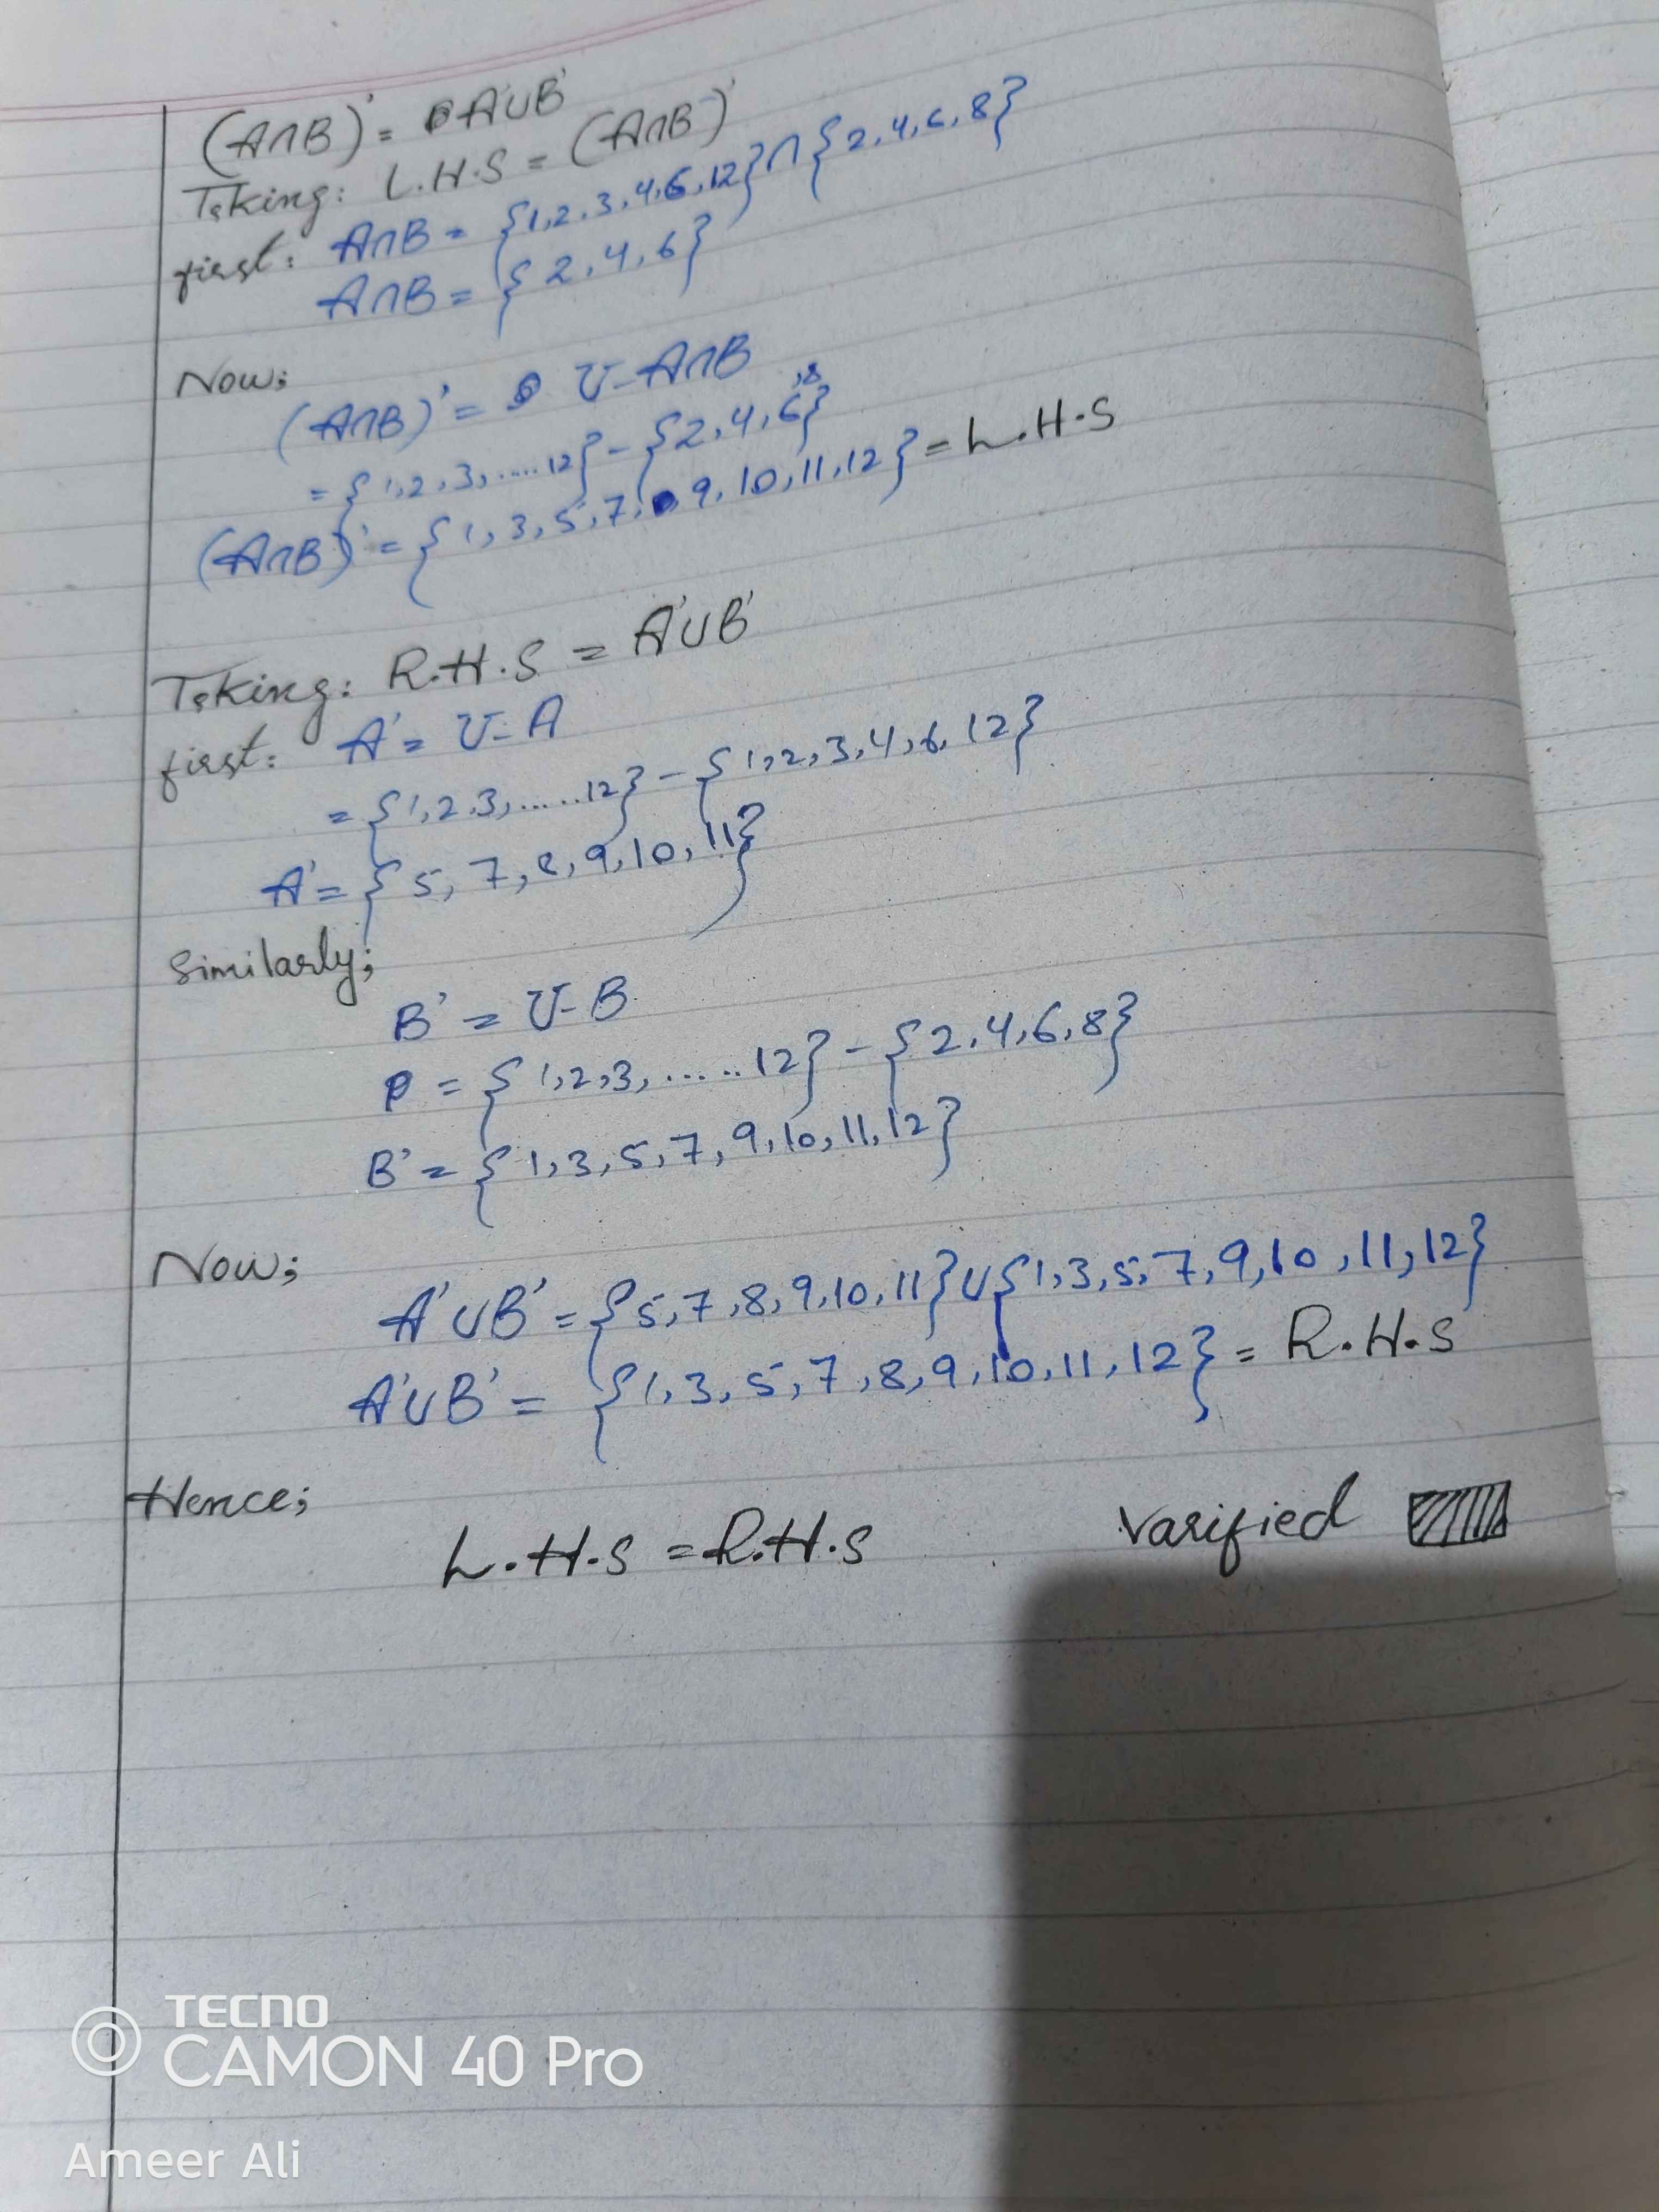 (A∩B)' = A'∪B'
Taking: L.H.S = (A∩B)'
first: A∩B = {1,2,3,4,6,12} ∩ {2,4,6,8}
A∩B = {2,4,6}
Now;
(A∩B)' = U-A∩B
= {1,2,3,.....12} - {2,4,6,8}
(A∩B)' = {1,3,5,7, 9,10,11,12} = L.H.S
Taking: R.H.S = A'∪B'
first: A' = U-A
= {1,2,3,.....12} - {1,2,3,4,6,12}
A' = {5,7,8,9,10,11}
Similarly;
B' = U-B
= {1,2,3,.....12} - {2,4,6,8}
B' = {1,3,5,7,9,10,11,12}
Now;
A'∪B' = {5,7,8,9,10,11} ∪ {1,3,5,7,9,10,11,12}
A'∪B' = {1,3,5,7,8,9,10,11,12} = R.H.S
Hence;
L.H.S = R.H.S Varified
TECNO
CAMON 40 Pro
Ameer Ali